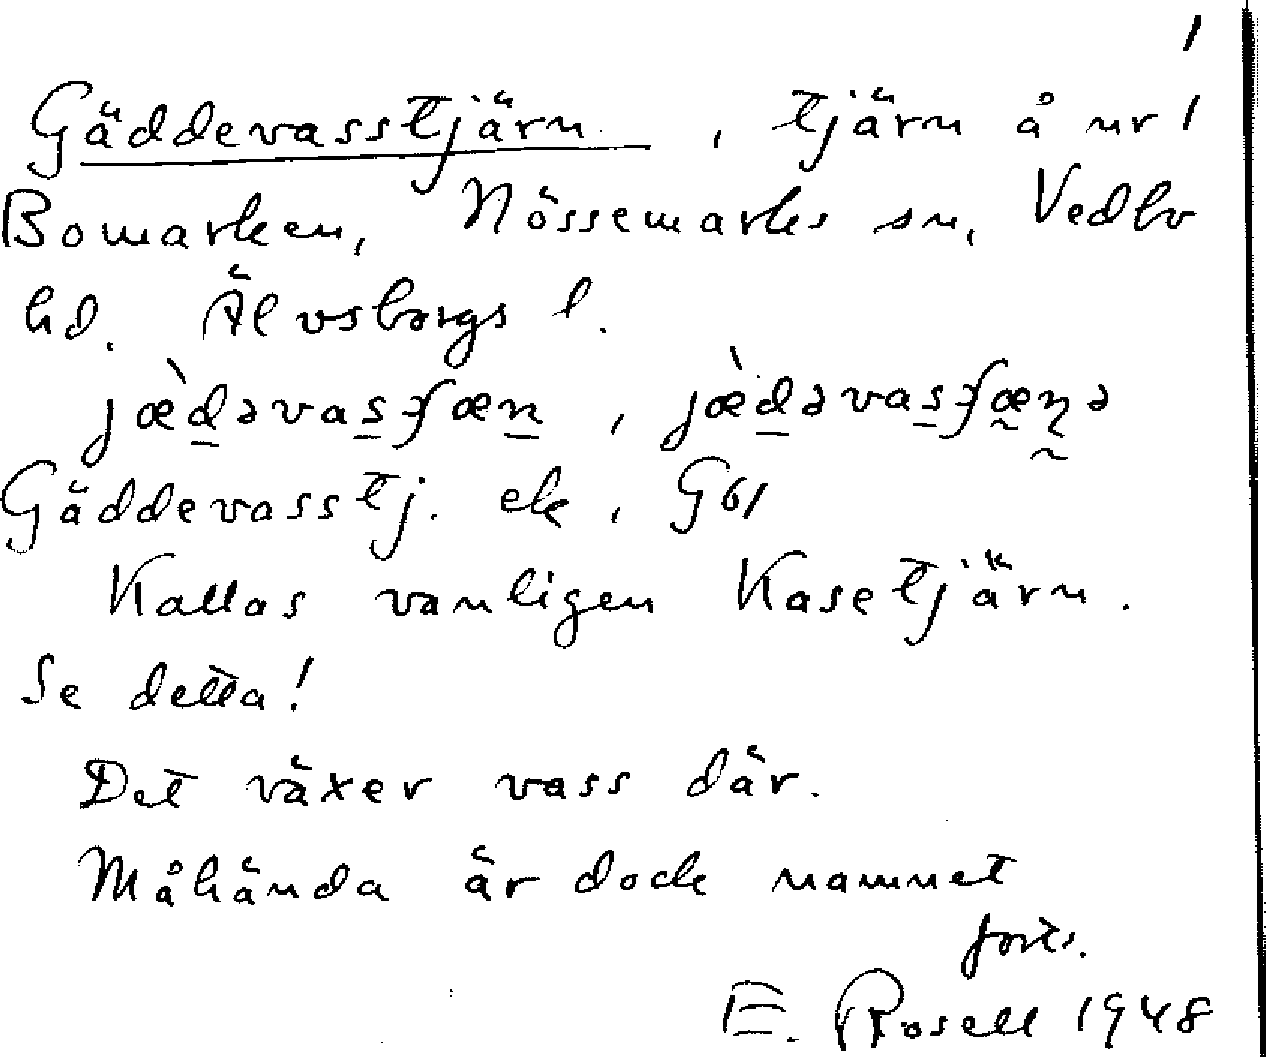 1
Gäddevasstjärn, tjärn å nr 1
Bomarken, Nössemarks sn, Vedbo
hd. Älvsborgs l.
jæ̀d̲əvas̲ʃæn̲, jæ̀d̲əvas̲ʃæ̰ṇə
Gäddevasstj. ek, G61
Kallas vanligen Kasetjärn.
Se detta!
Det växer vass där.
Måhända är dock namnet
forts.
E. Rosell 1948